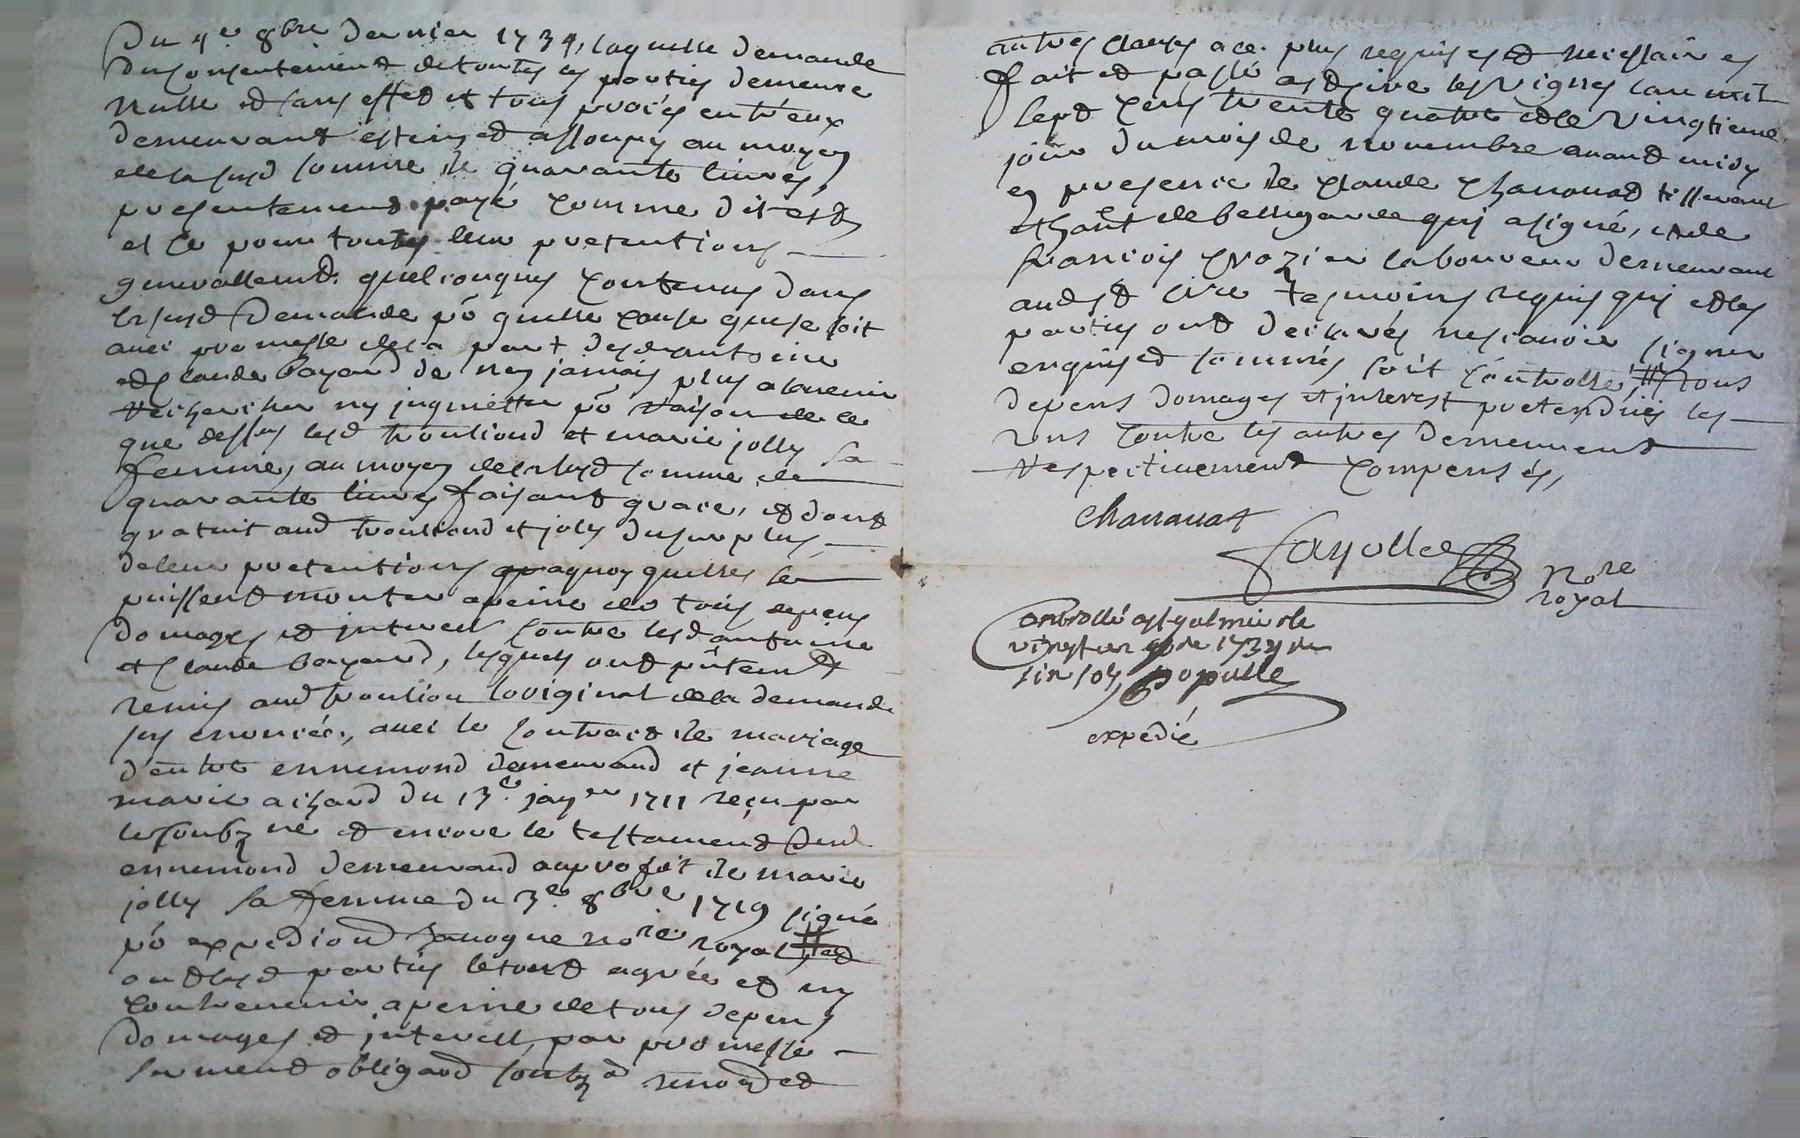 Du 4e 8bre dernier 1734, laquelle demande
du consentement de toutes les parties demeure
nulle et sans effect et tous procés entr'eux
demeurant esteins et assoupis au moyen
de la susd somme de quarante livres,
presentement payé comme dit est
et ce pour toutes leur pretentions
generallemt quelconques contenus dans
la susd demande po quelle cause que se soit
avec promesse de la part desd antoine
et claude bayard de ne jamais plus a lavenir
rechercher ny inquietter po raison de ce
que dessus lesd trouliond et marie jolly sa
femme, au moyen de la susd somme de
quarante livres faisant grace, et dont
gratuit aud trouliond et joly du surplus
de leur pretentions a quoy quelles se
puissent monter a peine de tous depens
domages et interest contre lesd antoine
et claude bayard, lesquels ont pntemt
remis aud troulion loriginal de la demande
sus enoncée, avec le contract de mariage
d'entre ennemond demeurand et jeanne
marie achard du 13e janer 1711 reçu par
le soubz né et encore le testament dud
ennemond demeurand au profit de marie
jolly sa femme du 3e 8bre 1719 signé
po expedion noire royal # et
ont lesd parties le tout agrée et ny
contrevenir a peine de tous depens
domages et interest, par promesse
serment obligaod soubz on renoond et
autres clauses a ce plus requises et necessaires
fait et passé a st sire les vignes lan mil
sept cens trente quatre et le vingtieme
jour du mois de novembre avant midy
en presence de claude chavanat tisserant
et habt de bellegarde qui a signé, et de
francois crozier laboureur demeurant
aud st cire tesmoins requis qui et les
parties ont declarés ne scavoir signer
enquis et sommés soit controllé, # tous
depens domages et interest pretendues les
uns contre les autres demeurent
respectivement compensés,
Chavanat
fayolle
Nore
royal
Controllé a st galmier le
vingt un 9bre 1734 Rx
six sols Populle
expedié